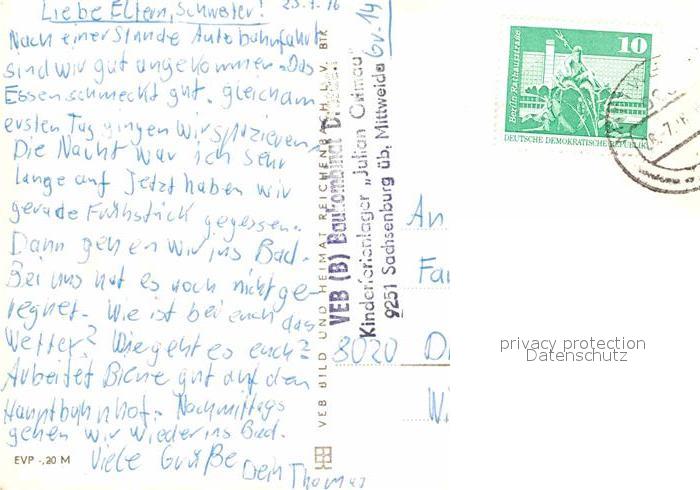 Liebe Eltern, Schwester! 25.7.76
Nach einer Stunde Autobahnfahrt
sind wir gut angekommen. Das
Essen schmeckt gut. gleich am
ersten Tag gingen wir spazieren.
Die Nacht war ich sehr
lange auf Jetzt haben wir
gerade Frühstück gegessen.
Dann gehen wir ins Bad.
Bei uns hat es noch nicht ge-
regnet. Wie ist bei euch das
Wetter? Wie geht es euch?
Arbeitet Biene gut auf den
Hauptbuhnhof. Nachmittags
gehen wir wieder ins Bad.
Viele Grüße
Dein Thomas
EVP -,20 M
VEB BILD UND HEIMAT REICHENBACH I. V. BTR
VEB (B) Baukombinat
Kinderferienlager „Julian Grimau"
9251 Sachsenburg üb. Mittweida
Gr. 14
An
Fa
8020 D
W
10
Berlin Rathausstraße
DEUTSCHE DEMOKRATISCHE REPUBLIK
privacy protection
Datenschutz